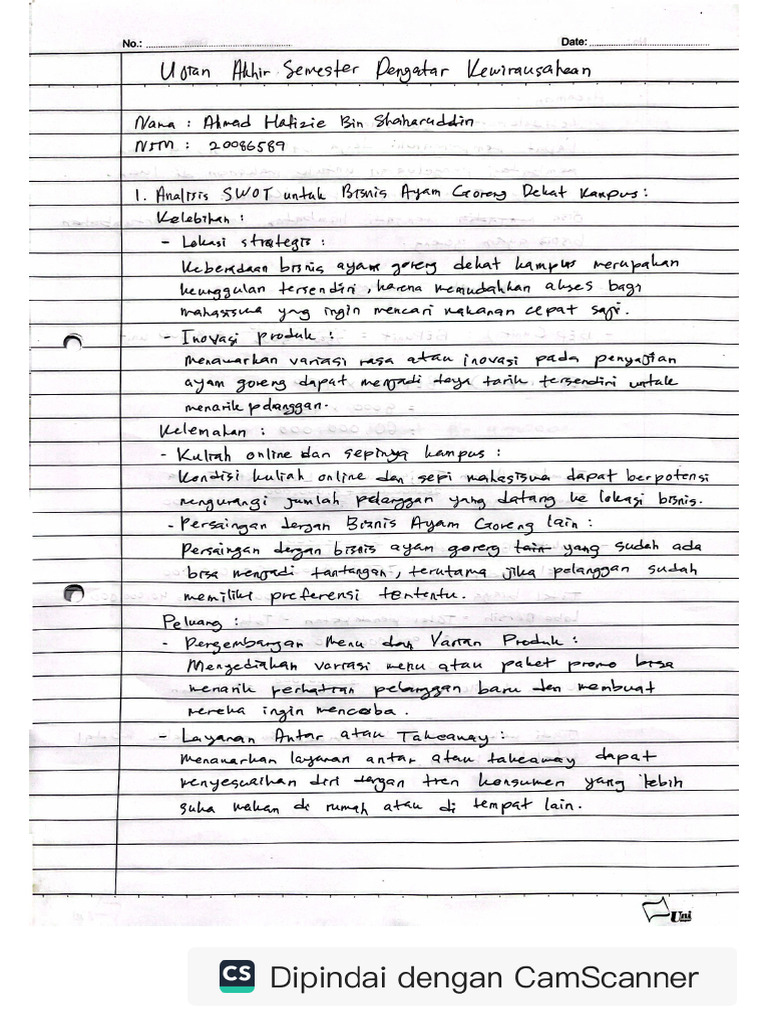 No.: Date:
Ujian Akhir Semester Pengatar Kewirausahaan
Nama : Ahmad Hafizie Bin Shaharuddin
NIM : 20086589
1. Analisis SWOT untuk Bisnis Ayam Goreng Dekat Kampus :
Kelebihan :
- Lokasi strategis :
Keberadaan bisnis ayam goreng dekat kampus merupakan
keunggulan tersendiri, karena memudahkan akses bagi
mahasiswa yng ingin mencari makanan cepat saji.
- Inovasi produk :
Menawarkan variasi rasa atau inovasi pada penyajian
ayam goreng dapat menjadi daya tarik tersendiri untuk
menarik pelanggan.
Kelemahan :
- Kuliah online dan sepinya kampus :
Kondisi kuliah online dan sepi mahasiswa dapat berpotensi
mengurangi jumlah pelanggan yang datang ke lokasi bisnis.
- Persaingan dengan Bisnis Ayam Goreng lain :
Persaingan dengan bisnis ayam goreng lain yang sudah ada
bisa menjadi tantangan, terutama jika pelanggan sudah
memiliki preferensi tertentu.
Peluang :
- Pengembangan Menu dan Varian Produk :
Menyediakan variasi menu atau paket promo bisa
menarik perhatian pelanggan baru dan membuat
mereka ingin mencoba.
- Layanan Antar atau Takeaway :
Menawarkan layanan antar atau takeaway dapat
menyesuaikan diri dengan tren konsumen yang lebih
suka makan di rumah atau di tempat lain.
Uni
CS Dipindai dengan CamScanner